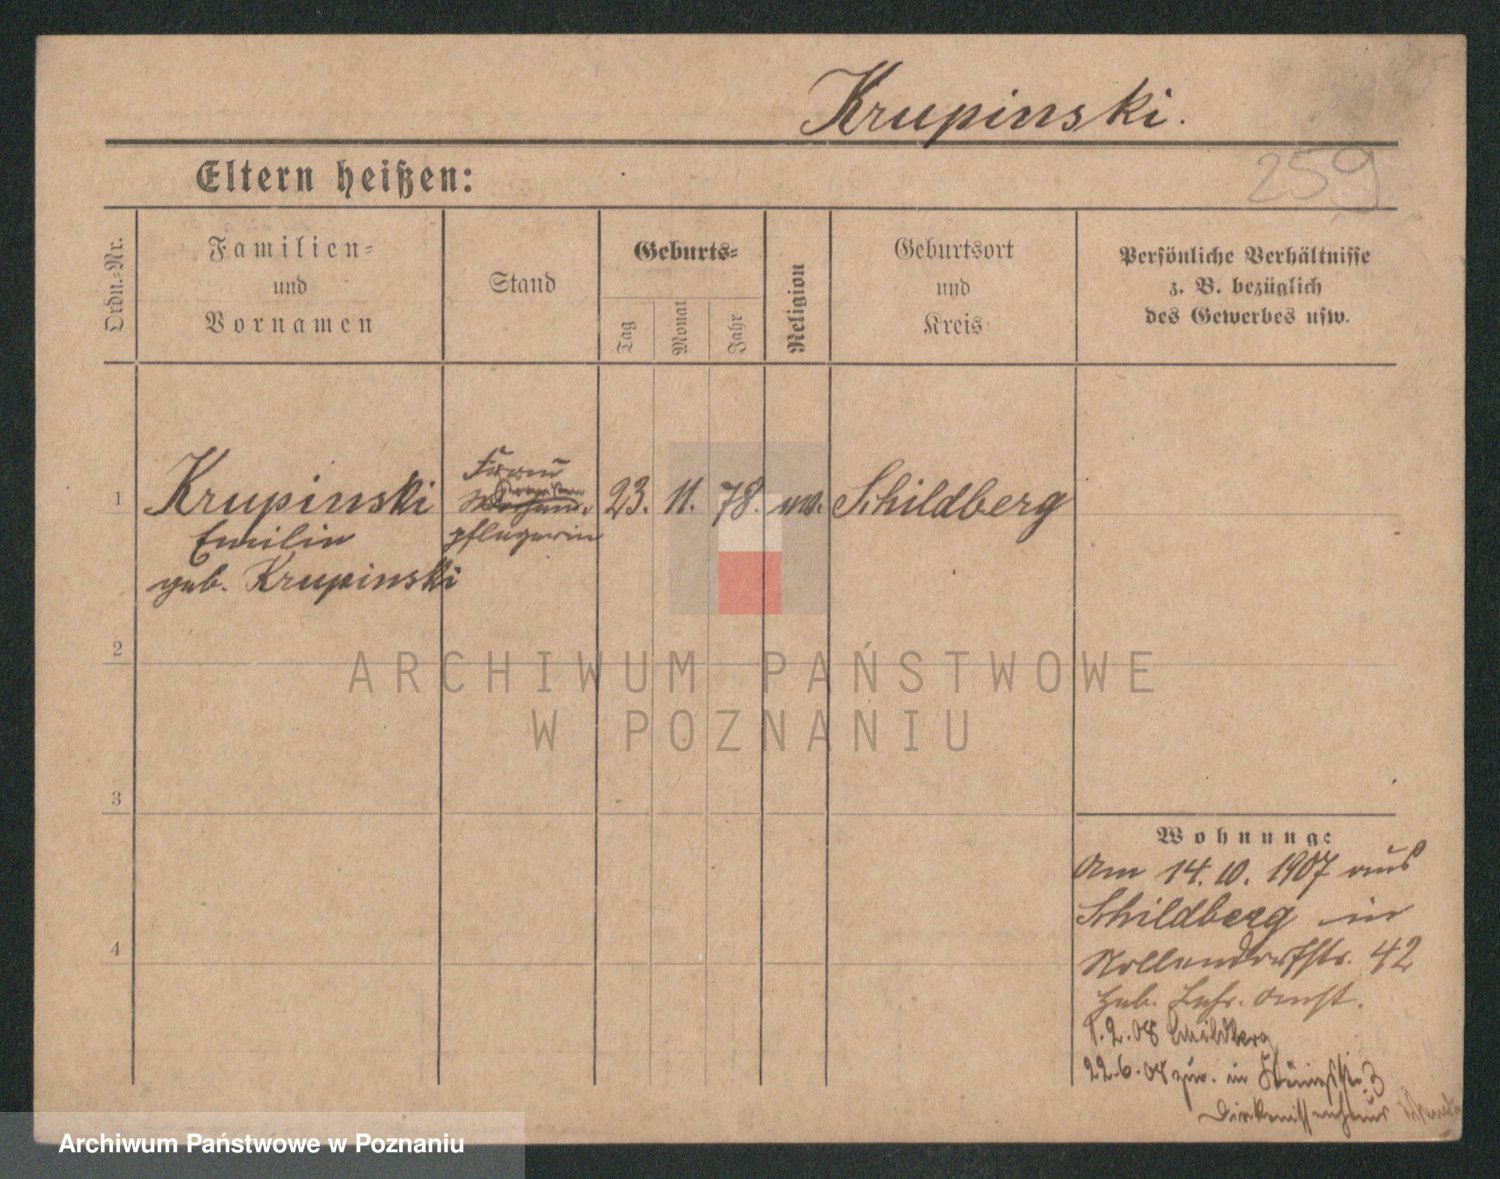 Krupinski.
259
Eltern heißen:
Ordn.-Nr.
Familien-
und
Vornamen
Stand
Geburts-
Tag
Monat
Jahr
Religion
Geburtsort
und
Kreis
Persönliche Verhältnisse
z. B. bezüglich
des Gewerbes usw.
1
Krupinski
Emilie
geb. Krupinski
Frau
pflegerin
23.
11.
78.
ev.
Schildberg
2
3
4
Wohnung:
Am 14. 10. 1907 aus
Schildberg in
Nollendorfstr. 42
Heb. Lehr. Anst.
1.2.08 Schildberg
22.6.08 zur. in Königstr. 3
Diakonissenhaus
ARCHIWUM PAŃSTWOWE
W POZNANIU
Archiwum Państwowe w Poznaniu